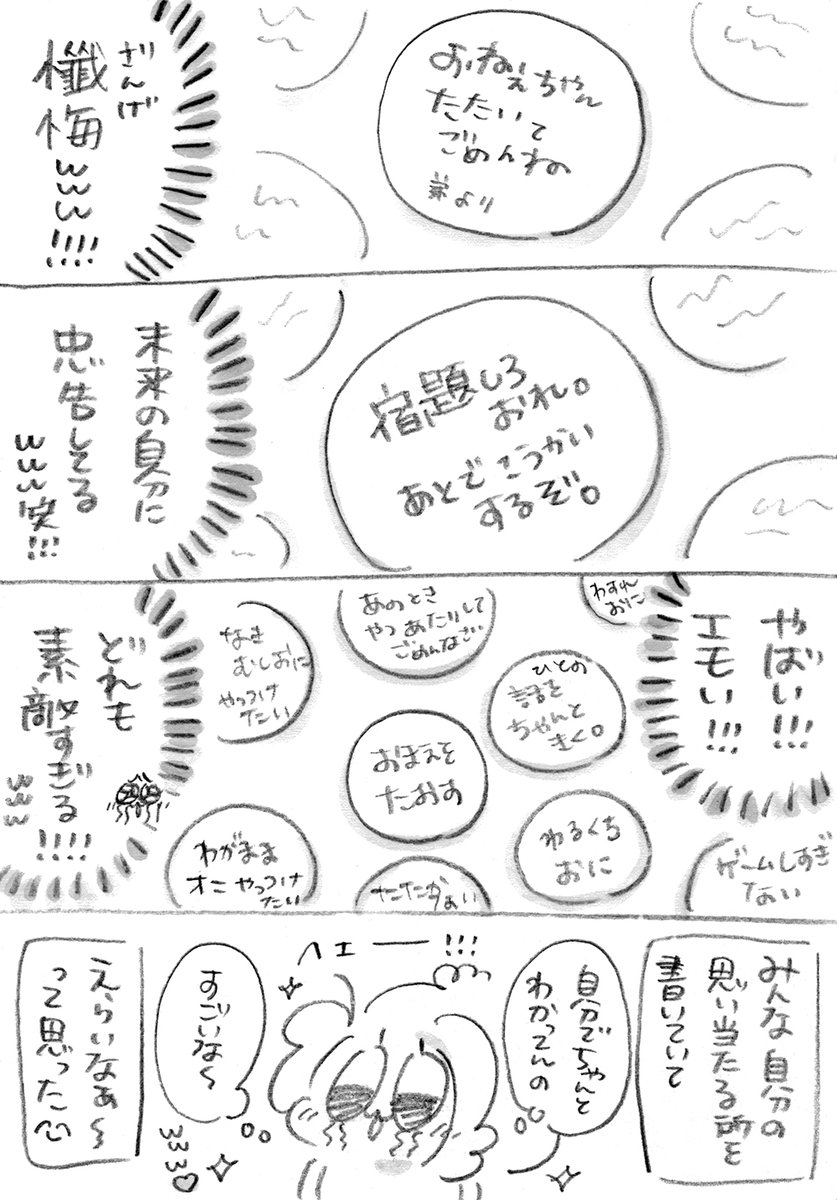 おねえちゃん
たたいて
ごめんね
弟より
ざんげ
懺悔
www!!!!
宿題しろ
おれ。
あとでこうかい
するぞ。
未来の自分に
忠告してる
www笑!!!
やばい!!!
エモい!!!
わすれ
おに
あのとき
やつあたりして
ごめんなさい
ひとの
話を
ちゃんと
きく。
なき
むしおに
やっつけ
たい
おまえを
たおす
わるくち
おに
わがまま
オニ やっつけ
たい
たたかあい
ゲームしすぎ
ない
どれも
素敵すぎる!!!!
www
みんな自分の
思い当たる所を
書いていて
ヘェー!!!
自分でちゃんと
わかってんの
すごいな〜
www♡
えらいなぁ〜
って思った心